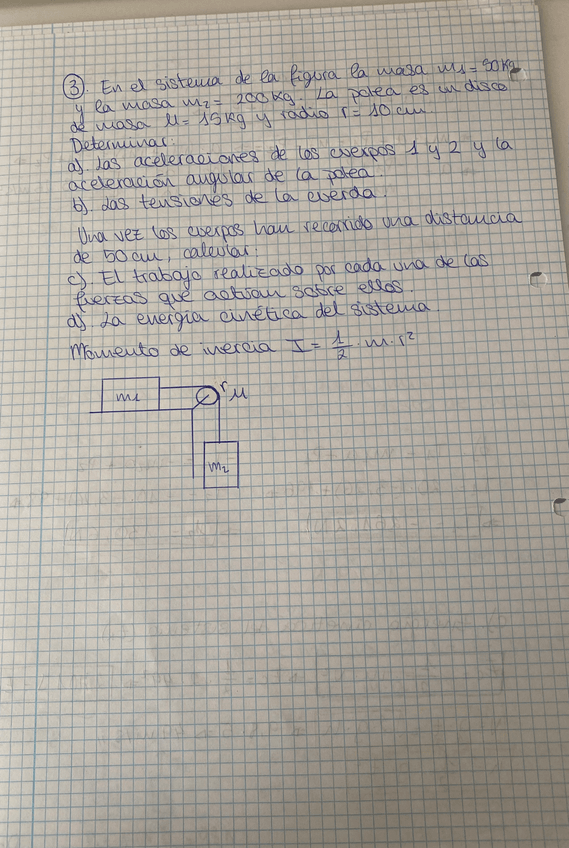 ③. En el sistema de la figura la masa m1 = 50kg
y la masa m2 = 200kg. La polea es un disco
de masa M = 15kg y radio r = 10cm.
Determinar:
a). Las aceleraciones de los cuerpos 1 y 2 y la
aceleración angular de la polea.
b). Las tensiones de la cuerda.
Una vez los cuerpos han recorrido una distancia
de 50cm, calcular:
c) El trabajo realizado por cada una de las
fuerzas que actúan sobre ellos.
d) La energía cinética del sistema.
Momento de inercia I = 1/2 · m · r²
m1
r M
m2